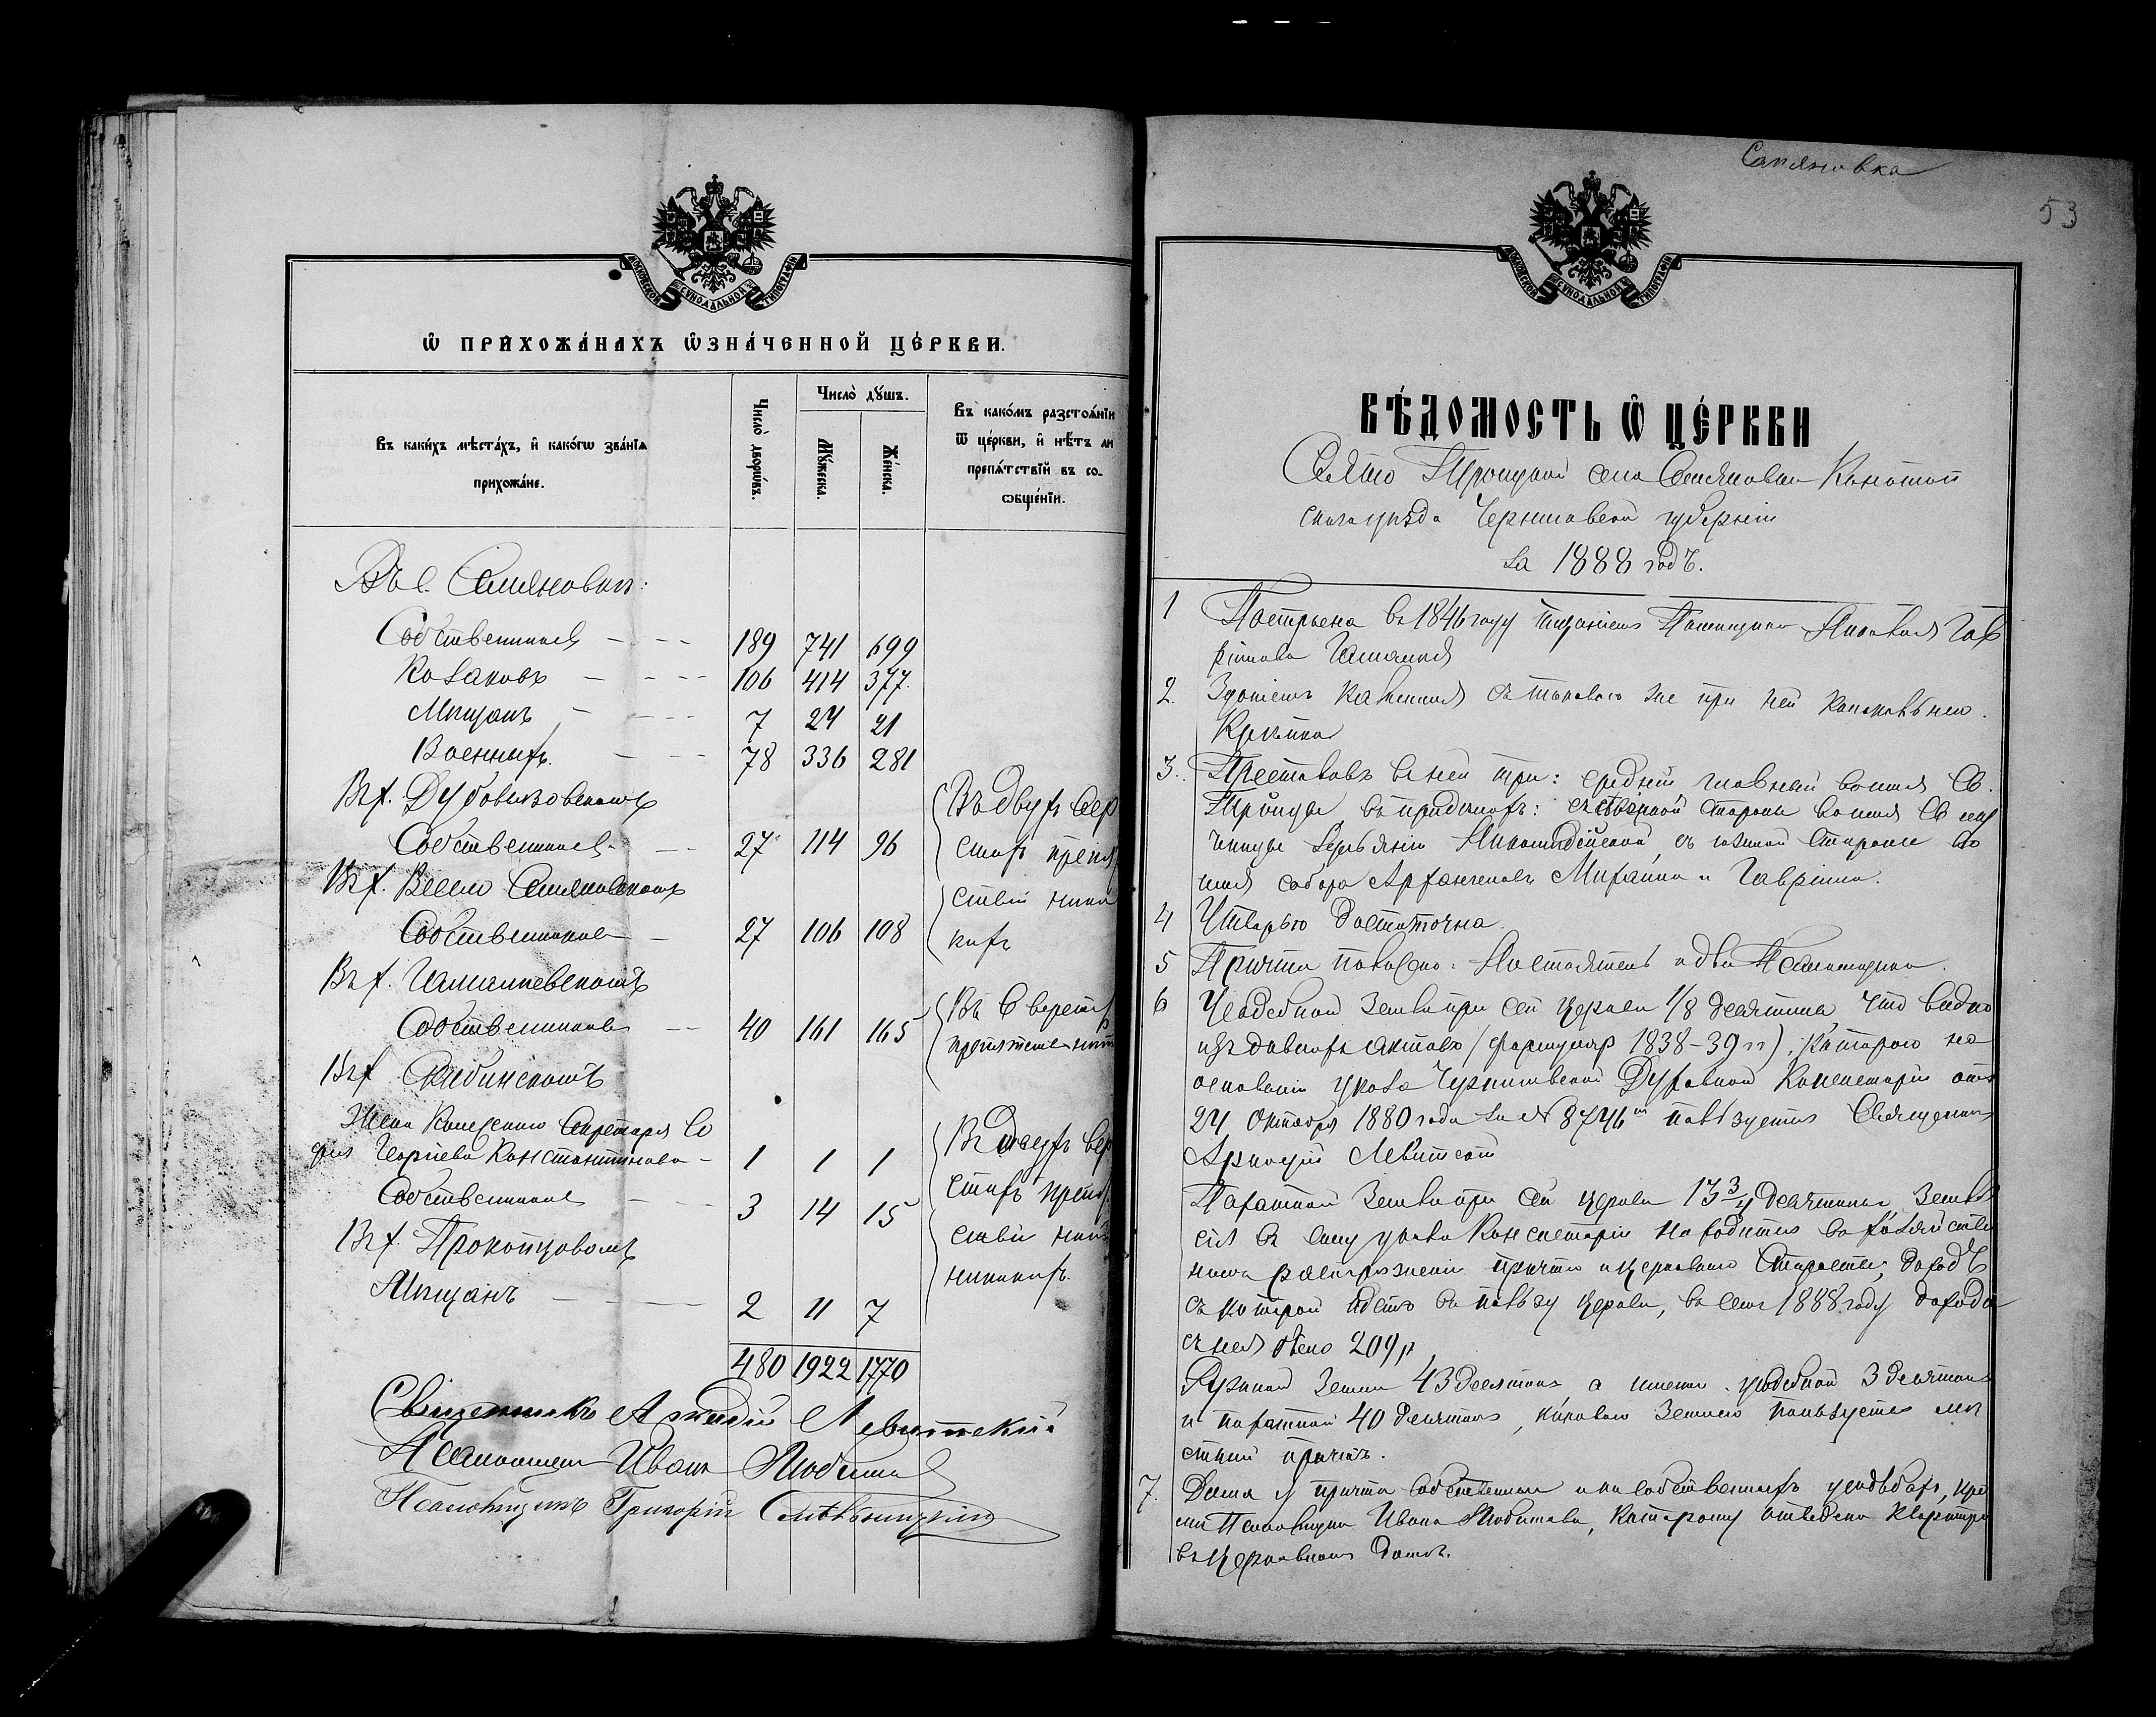 МОСКОВСКОЙ СѴНОДАЛЬНОЙ ТИПОГРАФІИ
Ѿ ПРИХОЖАНАХЪ ѾЗНАЧЕННОЙ ЦЕРКВИ.
Въ какихъ мѣстахъ, и какогѡ званїѧ
прихожане.
Число дворѡвъ.
Число душъ.
Мужеска.
Женска.
Въ какомъ разстоѧнїи
ѿ церкви, и нѣтъ ли
препѧтствїй въ со-
ѻбщенїи.
Въ с. Семяновкѣ:
Собственниковъ 189 741 699
Козаковъ 106 414 377
Мѣщанъ 7 24 21
Военныхъ 78 336 281
Въ х.
Собственниковъ 27 114 96
Въ двухъ вер
стахъ препят
Въ х. Семяновскомъ
ствій ника
Собственниковъ 27 106 108
кихъ
Въ х. Гамалеевскомъ
Собственниковъ 40 161 165
Въ 6 верстахъ
препятствій нѣтъ
Въ х.
Жена Секретаря Со
фія Константинова 1 1 1
Въ вер
стахъ препят
Собственниковъ 3 14 15
ствій
Въ х. Прокопцовомъ
никакихъ.
Мѣщанъ 2 11 7
480 1922 1770
Священникъ Аркадій Левитскій
Псаломщикъ Иванъ Любимовъ
Псаломщикъ Григорій
Семяновка
53
МОСКОВСКОЙ СѴНОДАЛЬНОЙ ТИПОГРАФІИ
ВѢДОМОСТЬ Ѿ ЦЕРКВИ
Свято Троицкой села Семяновки Конотоп
скаго уѣзда Черниговской губерніи
за 1888 годъ.
1 Построена въ 1846 году тщаніемъ Помѣщика Гав
рілова Гамалѣя
2. Зданіемъ каменная съ таковою же при ней колокольнею.
Крѣпка
3. Престоловъ въ ней три: средній главный во имя Св.
Троицы, въ придѣлахъ: съ сѣверной стороны во имя Св. му
ченицы Никомидійской, съ южной стороны во
имя собора Архангеловъ Михаила и Гавріила.
4 Утварью достаточна.
5 Причта положено: Настоятель и два Псаломщика.
6 Усадебной земли при сей церкви 1/8 десятина, что видно
изъ давнихъ актовъ (формуляр 1838-39 гг), которою на
основаніи указа Черниговской Духовной Консисторіи отъ
24 Октября 1880 года за № 8746 пользуется Священникъ
Аркадій Левитскій
Пахатной земли при сей церкви 13 3/4 десятины. Земля
сія въ силу указа Консисторіи находится въ хозяйствен
номъ распоряженіи причта и церковнаго Старосты; доходъ
съ которой идетъ въ пользу церкви, въ семъ 1888 году дохода
съ нея было 209 р
Ружной земли 43 десятины, а именно: усадебной 3 десятины
и пахатной 40 десятинъ, каковою землею пользуется мѣ
стный причтъ.
7. Дома у причта собственные и на собственныхъ усадьбахъ, кро
мѣ Псаломщика Ивана Любимова, которому отведена квартира
въ церковномъ домѣ.